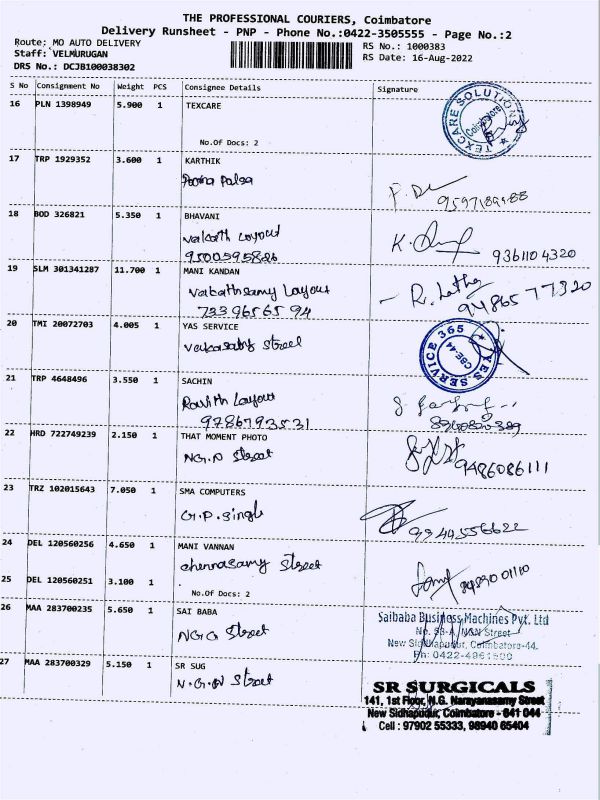 THE PROFESSIONAL COURIERS, Coimbatore
Delivery Runsheet - PNP - Phone No.:0422-3505555 - Page No.:2
Route: MO AUTO DELIVERY
Staff: VELMURUGAN
DRS No.: DCJB100038302
RS No.: 1000383
RS Date: 16-Aug-2022
S No Consignment No Weight PCS Consignee Details Signature
16 PLN 1398949 5.900 1 TEXCARE
No.Of Docs: 2
TEXCARE SOLUTIONS
Coimbatore
17 TRP 1929352 3.600 1 KARTHIK
18 BOD 326821 5.350 1 BHAVANI
Layout
9500595826
9361104320
19 SLM 301341287 11.700 1 MANI KANDAN
Layout
7339656594
R. Latha
9486577320
20 TMI 20072703 4.005 1 YAS SERVICE
Street
YES SERVICE 365
CBE-44
21 TRP 4648496 3.550 1 SACHIN
Layout
9786793531
22 HRD 722749239 2.150 1 THAT MOMENT PHOTO
NG.N Street
9486086111
23 TRZ 102015643 7.050 1 SMA COMPUTERS
G.P. Singh
9944556622
24 DEL 120560256 4.650 1 MANI VANNAN
chennasamy Street
25 DEL 120560251 3.100 1 .
No.Of Docs: 2
26 MAA 283700235 5.650 1 SAI BABA
NGG Street
Saibaba Business Machines Pvt. Ltd
No. 53-A, NGN Street
New Sidhapudur, Coimbatore-44.
27 MAA 283700329 5.150 1 SR SUG
N.G.N Street
SR SURGICALS
141, 1st Floor, N.G. Narayanasamy Street
New Sidhapudur, Coimbatore - 641 044
Cell : 97902 55333, 98940 65404